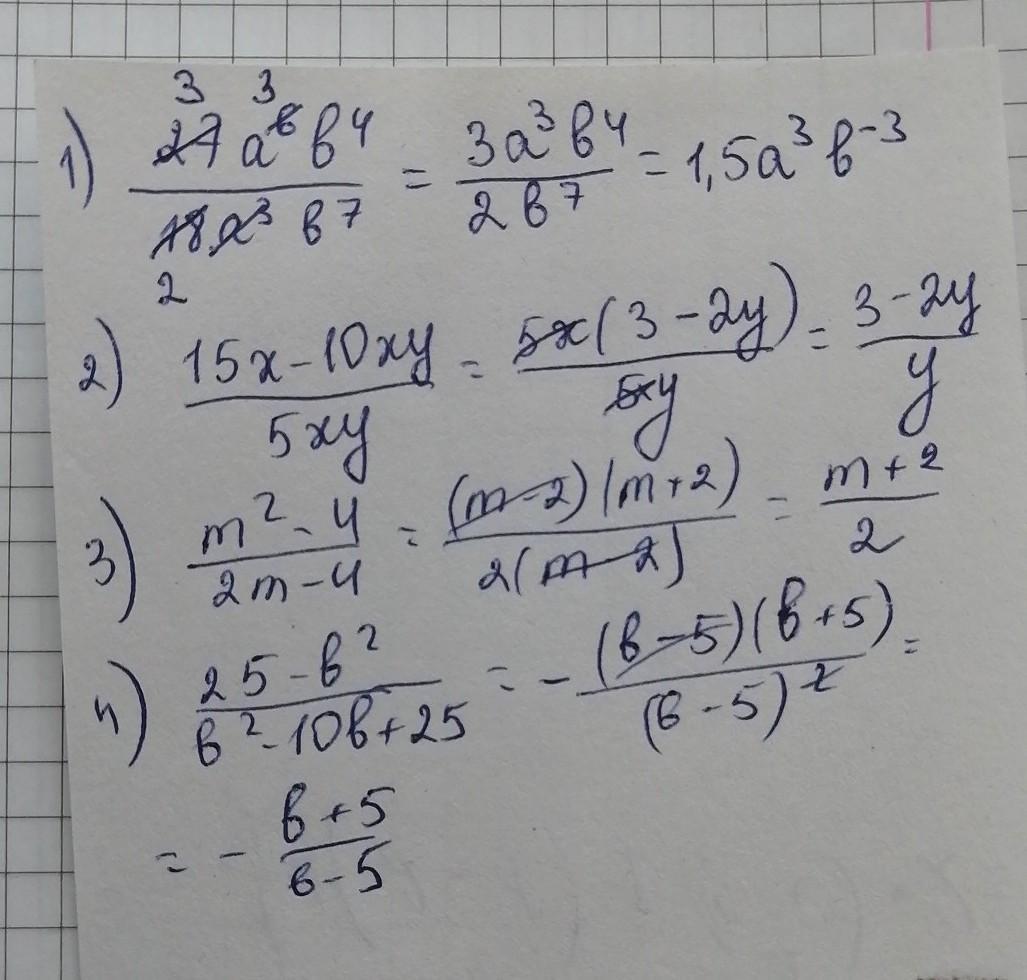 1) 27a⁶b⁴ / 18a³b⁷ = 3a³b⁴ / 2b⁷ = 1,5a³b⁻³
2) 15x-10xy / 5xy = 5x(3-2y) / 5xy = 3-2y / y
3) m²-4 / 2m-4 = (m-2)(m+2) / 2(m-2) = m+2 / 2
4) 25-b² / b²-10b+25 = -(b-5)(b+5) / (b-5)² =
= - b+5 / b-5